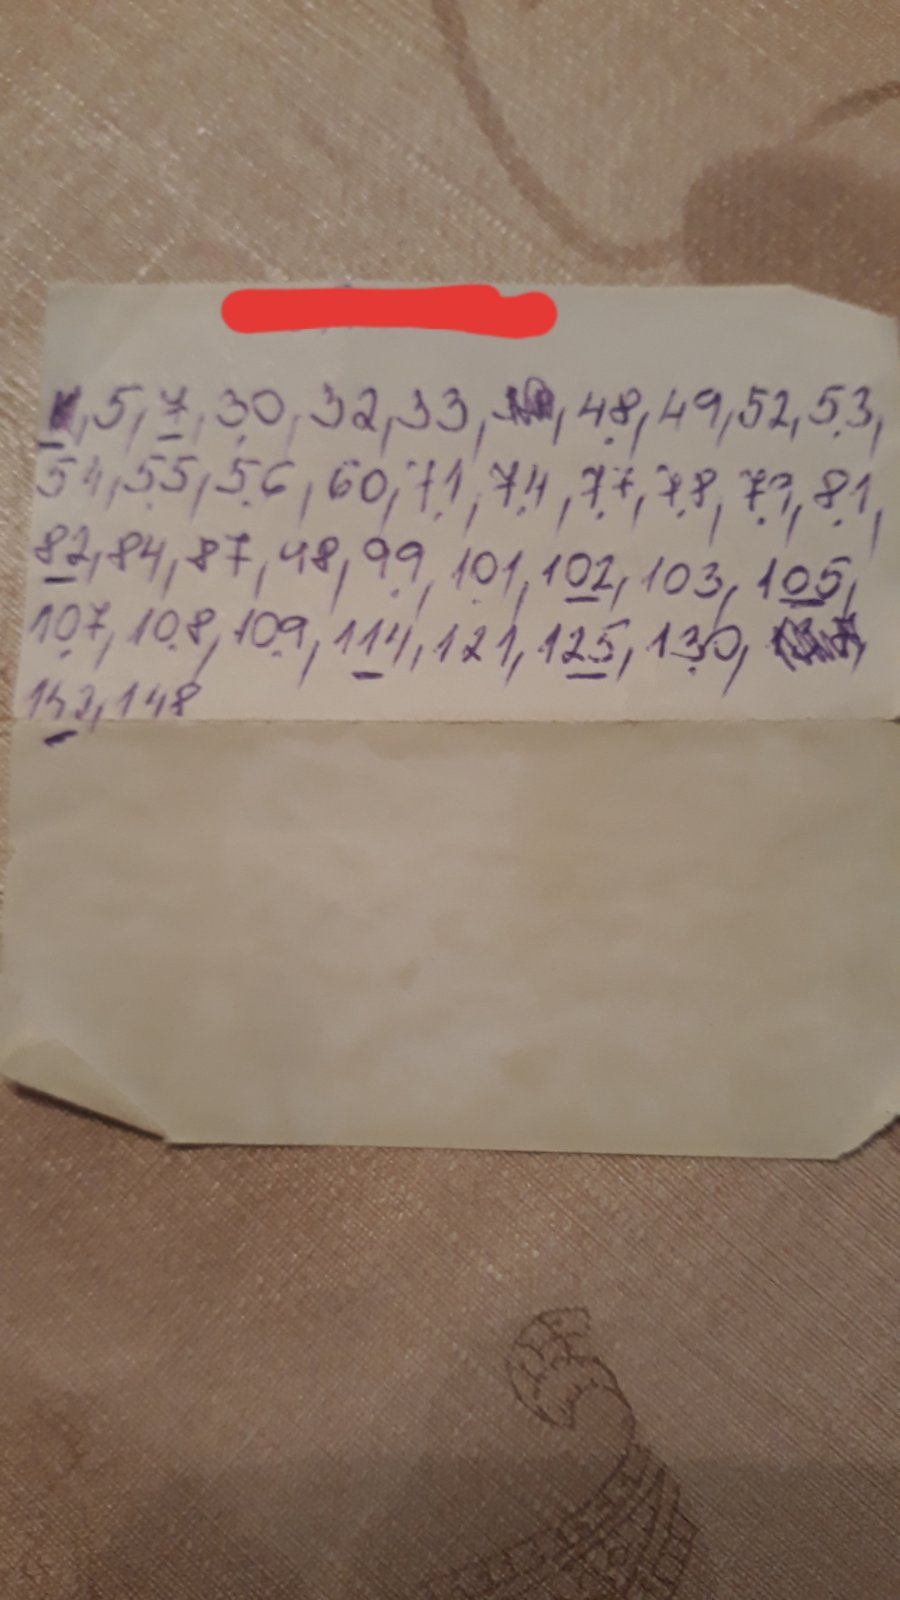 5, 7, 30, 32, 33, 48, 49, 52, 53,
54, 55, 56, 60, 71, 74, 77, 78, 79, 81,
82, 84, 87, 98, 99, 101, 102, 103, 105,
107, 108, 109, 114, 121, 125, 130,
142, 148